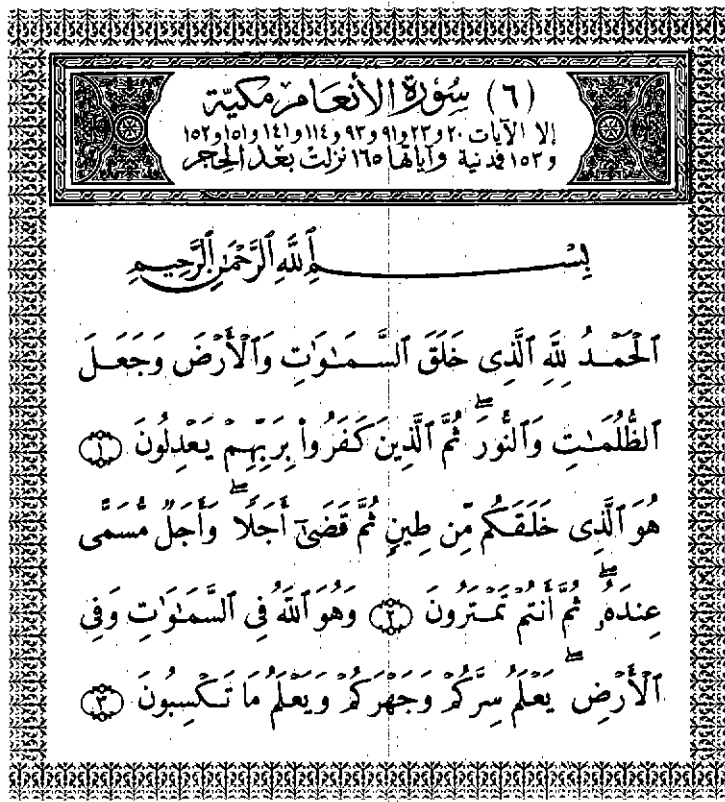 (٦) سُورَة الأنعَام مكيّة
إلا الآيات ٢٠ و٢٣ و٩١ و٩٣ و١١٤ و١٤١ و١٥١ و١٥٢
و١٥٣ فمدنية وآياتها ١٦٥ نزلت بعد الحجر
بِسْمِ ٱللَّهِ ٱلرَّحْمَٰنِ ٱلرَّحِيمِ
ٱلْحَمْدُ لِلَّهِ ٱلَّذِى خَلَقَ ٱلسَّمَٰوَٰتِ وَٱلْأَرْضَ وَجَعَلَ
ٱلظُّلُمَٰتِ وَٱلنُّورَ ۖ ثُمَّ ٱلَّذِينَ كَفَرُوا۟ بِرَبِّهِمْ يَعْدِلُونَ ١
هُوَ ٱلَّذِى خَلَقَكُم مِّن طِينٍ ثُمَّ قَضَىٰٓ أَجَلًا ۖ وَأَجَلٌ مُّسَمًّى
عِندَهُۥ ۖ ثُمَّ أَنتُمْ تَمْتَرُونَ ٢ وَهُوَ ٱللَّهُ فِى ٱلسَّمَٰوَٰتِ وَفِى
ٱلْأَرْضِ ۖ يَعْلَمُ سِرَّكُمْ وَجَهْرَكُمْ وَيَعْلَمُ مَا تَكْسِبُونَ ٣